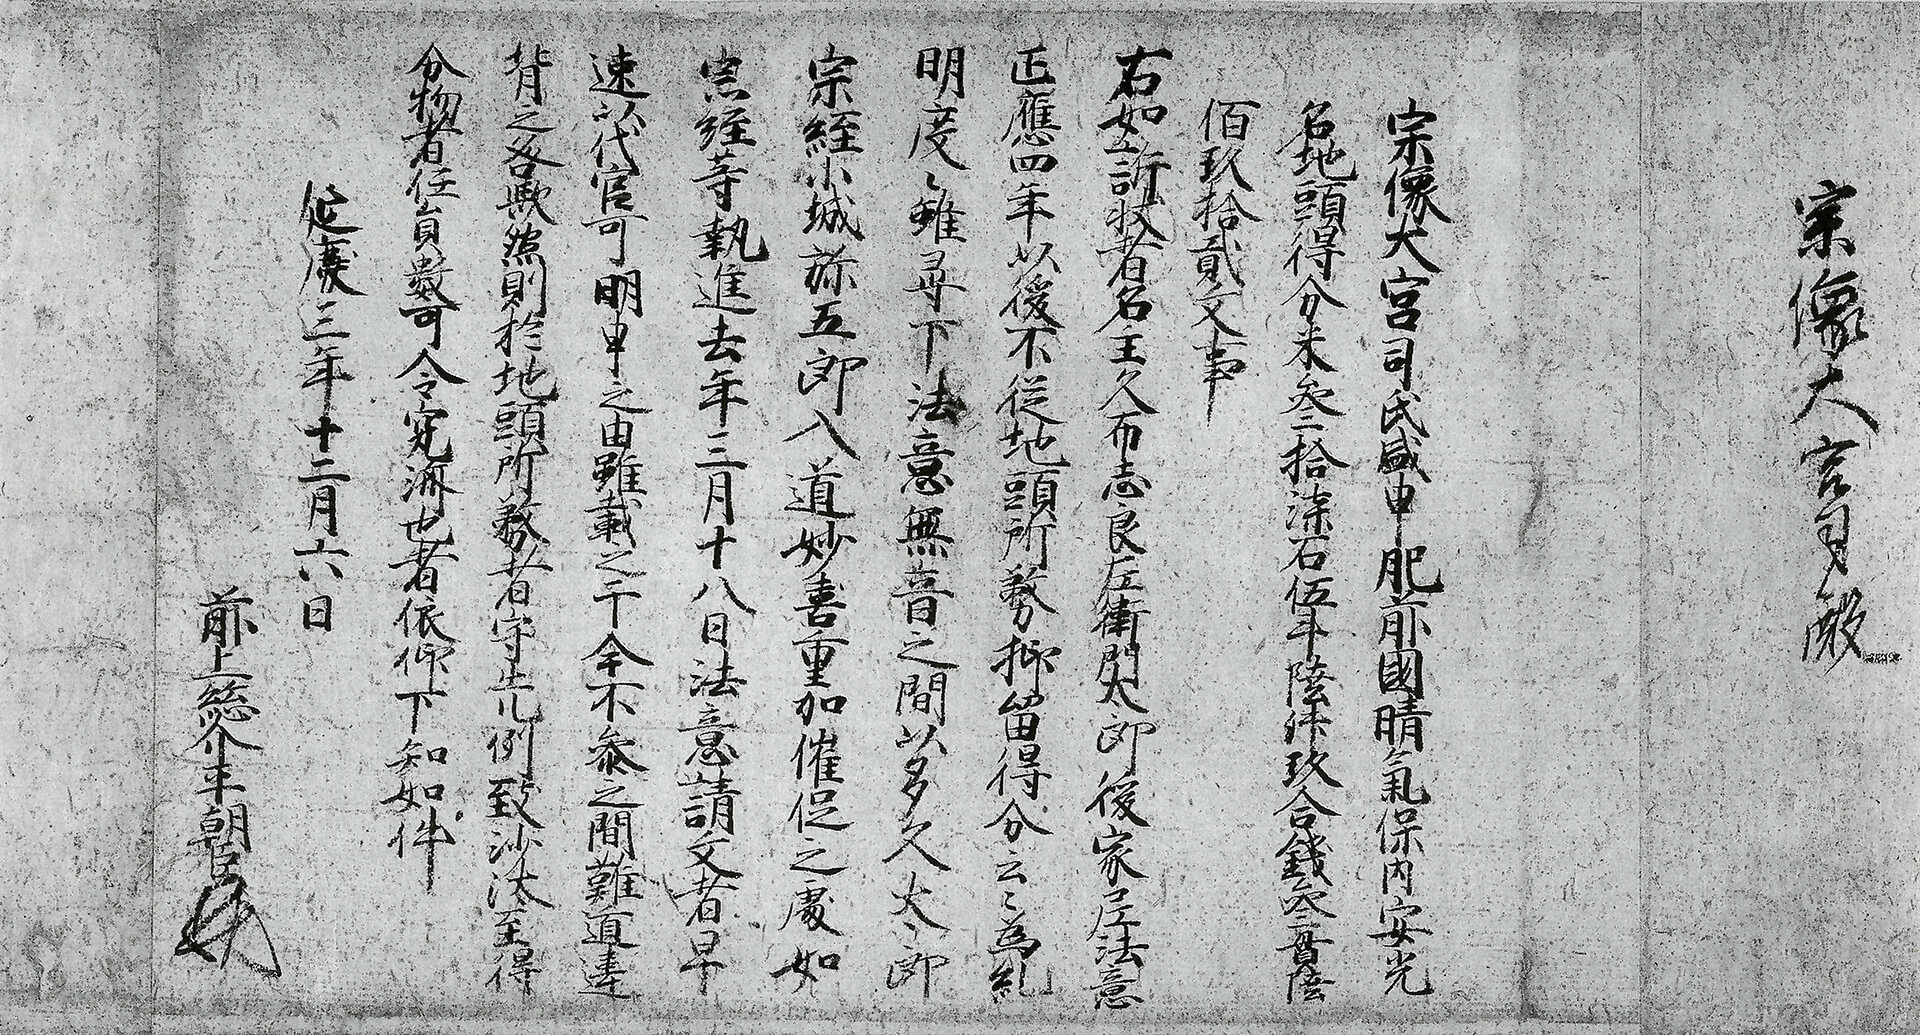 宗像大宮司殿
宗像大宮司氏盛申肥前國晴氣保内安光
名地頭得分米叁拾漆石伍斗陸升玖合錢叁貫陸
佰玖拾貳文事
右如訴状者名主久布志良左衛門太郎後家尼法意
正應四年以後不従地頭所務抑留得分云々為糺
明度々雖尋下法意無音之間以多久太郎
宗經小城弥五郎入道妙喜重加催促之處如
宗經等執進去年三月十八日法意請文者早
速以代官可明申之由雖載之于今不参之間難遁違
背之咎歟然則於地頭所務者守先例致沙汰至得
分物者任員數可令究濟也者依仰下知如件
延慶三年十二月六日
前上総介平朝臣